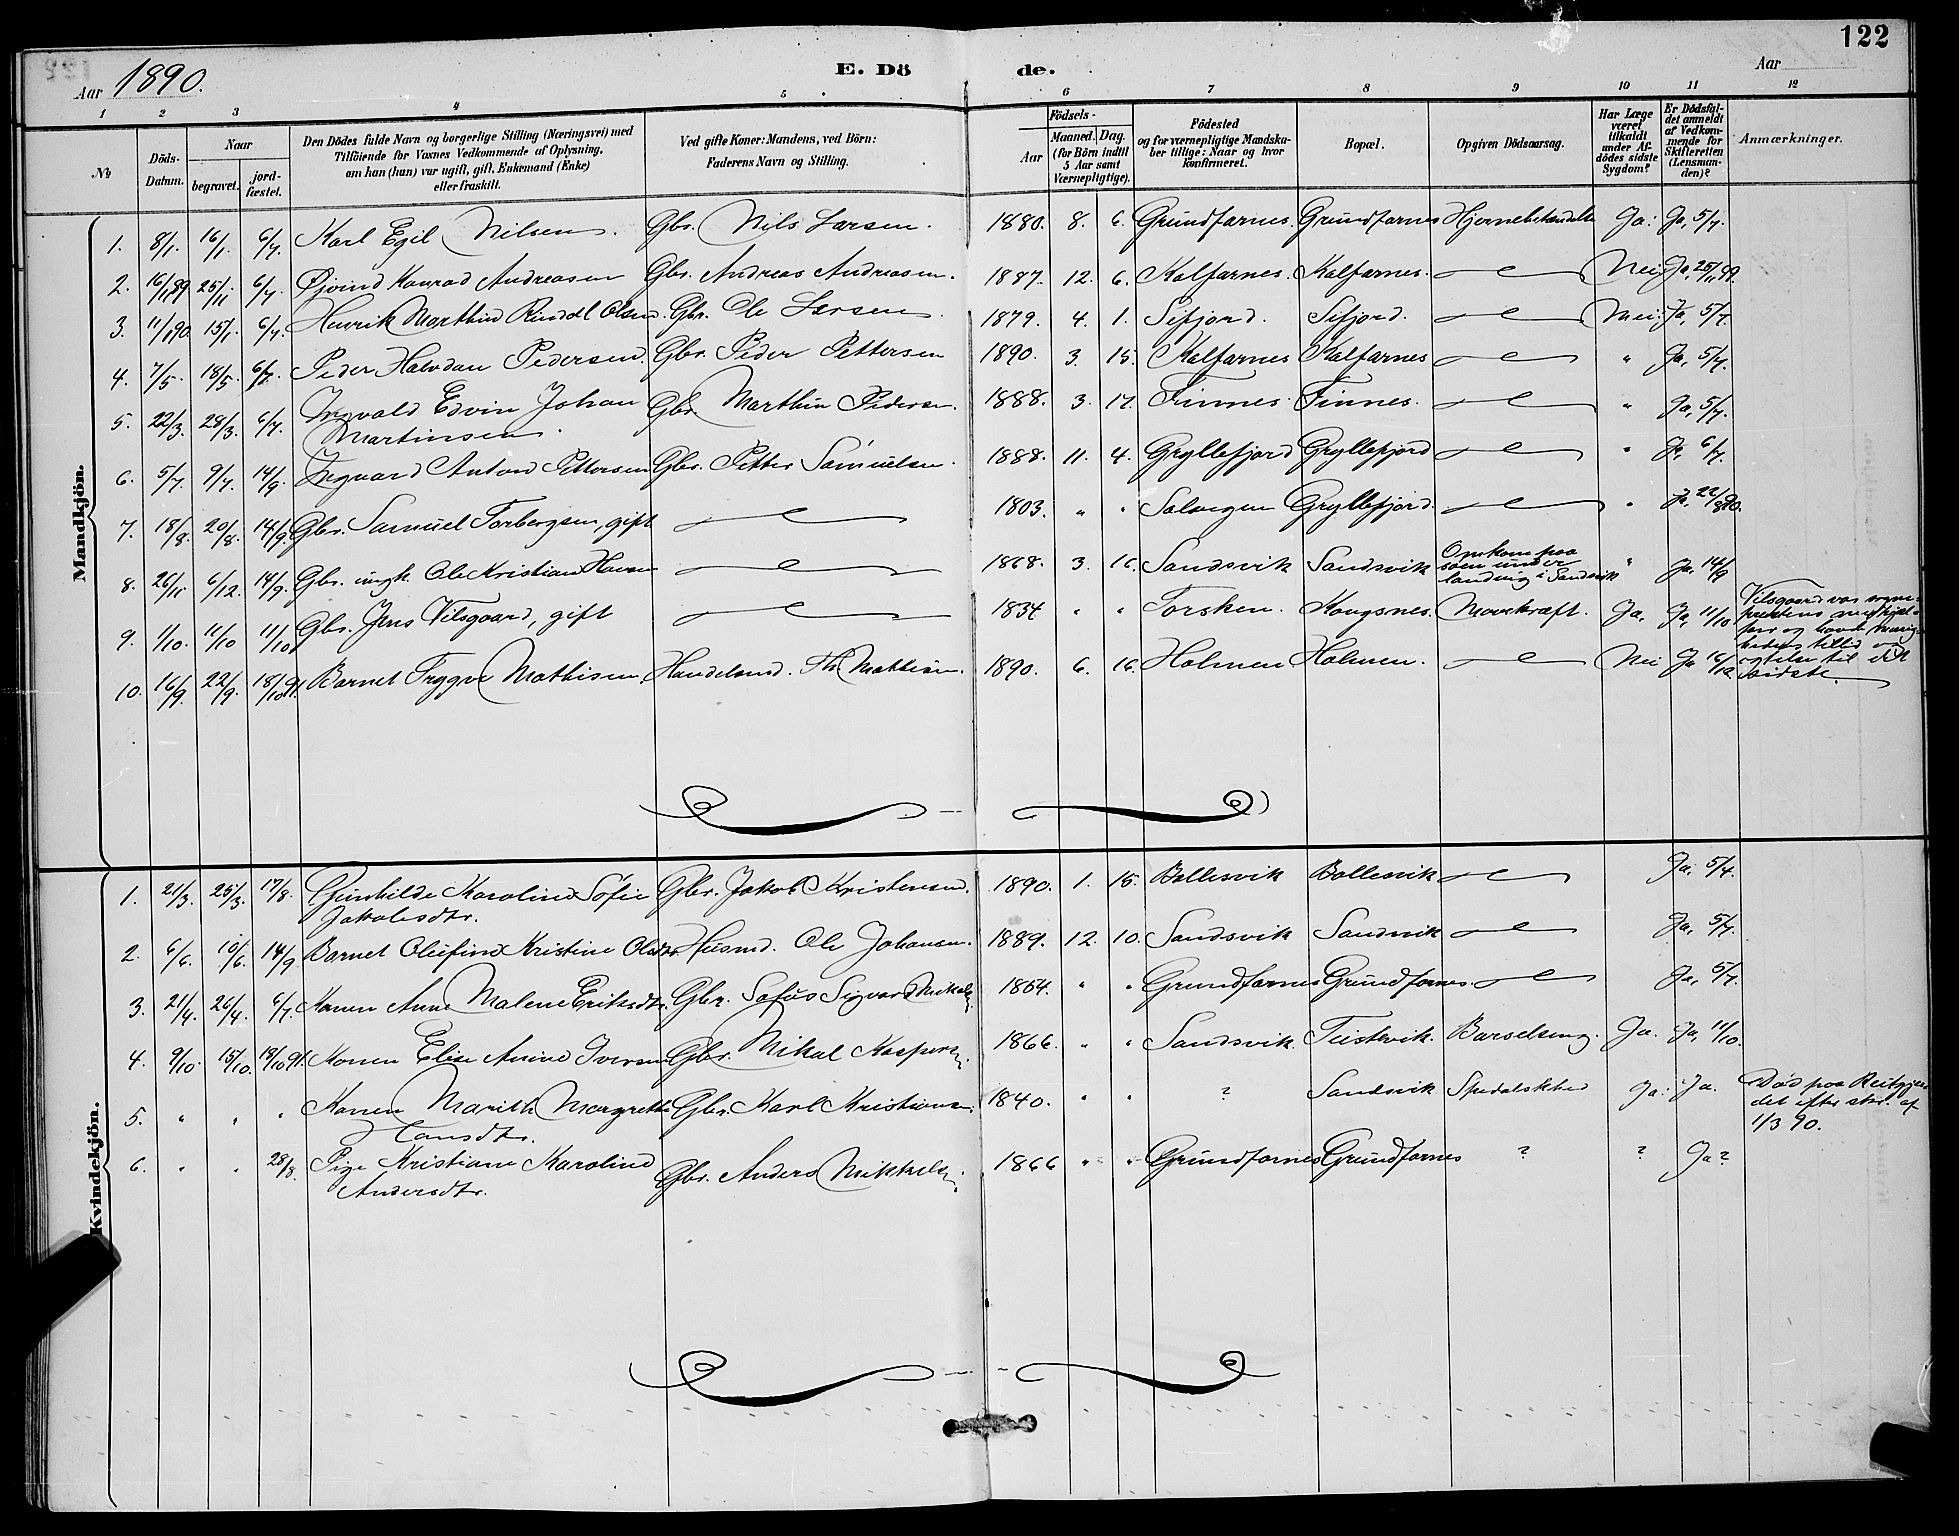 122
Aar 1890.
E. Dö
de.
Aar
1 2 3 4 5 6 7 8 9 10 11 12
№
Döds-Datum.
Naar
begravet.
jord-fæstet.
Den Dödes fulde Navn og borgerlige Stilling (Næringsvei) med
Tilföiende for Voxnes Vedkommende af Oplysning,
om han (hun) var ugift, gift, Enkemand (Enke)
eller fraskilt.
Ved gifte Koner: Mandens, ved Börn:
Faderens Navn og Stilling.
Födsels-
Aar
Maaned. Dag.
(for Börn indtil
5 Aar samt
Værnepligtige).
Födested
og for værnepligtige Mandska-
ber tillige: Naar og hvor
konfirmeret.
Bopæl.
Opgiven Dödsaarsag.
Har Læge
været
tilkaldt
under Af-
dödes sidste
Sygdom?
Er Dödsfal-
det anmeldt
af Vedkom-
mende for
Skifteretten
(Lensman-
den)?
Anmærkninger.
Mandkjön.
1. 8/1. 16/1. 6/7. Karl Egil Nilsen. Gbr. Nils Larsen. 1880. 8. 6. Grundfarnes. Grundfarnes Ja: Ja, 5/7.
2. 16/11 89 25/11 6/7. Øjvind Konrad Andreasen Gbr. Andreas Andreasen. 1887. 12. 6. Kalfarnes. Kalfarnes. Nei Ja, 25/11 89.
3. 11/1 90. 15/1. 6/7. Henrik Marthin Olsen. Gbr. Ole Larsen 1879. 4. 1. Sifjord. Sifjord. Nei. Ja, 5/7.
4. 7/5. 18/5. 6/7. Peder Halvdan Pedersen Gbr. Peder Pettersen 1890. 3 15. Kalfarnes Kalfarnes " Ja, 5/7.
5. 22/3. 28/3. 6/7. Ingvald Edvin Johan Gbr. Marthin Pedersen. 1888. 3. 17. Finnes Finnes. " Ja, 5/7.
Martinsen.
6. 5/7. 9/7. 14/9. Ingvard Anton Pettersen Gbr. Petter Samuelsen. 1888. 11. 4. Gryllefjord Gryllefjord " Ja, 6/7.
7. 18/8. 20/8. 14/9. Gbr. Samuel Torbergsen, gift 1803. " " Salvegen Gryllefjord. " Ja, 22/8 90.
8. 26/11 6/12. 14/9. Gbr. ungk. Ole Kristian Hansen 1868. 3. 16. Sandsvik Sandsvik Omkom paa
søen under
landing i Sandsvik " Ja, 14/9
9. 1/10. 11/10 11/10 Gbr. Jens Vilsgaard, gift 1834 " " Torsken. Kongsnes. Mavekræft. Ja. Ja, 11/10 Vilsgaard var sogne-
præstens medhjæl-
per og havde
hedens tillid
til det
sidste.
10. 16/9. 22/9. 18/10 91. Barnet Trygve Mathisen. Handelsmd. Th. Mathisen. 1890. 6. 16. Holmen Holmen. Nei Ja 16/12
Kvindekjön.
1. 21/3. 25/3. 17/8. Gunhilde Karoline Sofie Gbr. Jakob Kristensen. 1890. 1. 15. Ballesvik Ballesvik Ja, 5/7.
Jakobsdtr.
2. 6/6. 10/6. 14/9. Barnet Olufine Kristine Olsdtr. Husmd. Ole Johansen. 1889. 12. 10. Sandsvik Sandsvik Ja, 5/7.
3. 21/4. 26/4. 6/7. Konen Anne Malene Eriksdtr. Gbr. Sofus Sigvard 1864. " " Grundfarnes Grundfarnes. Ja, 5/7.
4. 9/10. 15/10. 18/10 91. Konen Elise Anine Iversen Gbr. Mikal Kaspersen. 1866. " " Sandsvik. Teistevik. Barselseng. Ja. Ja, 11/10.
5. " " " Konen Marith Margrethe Gbr. Karl Kristiansen. 1840. " " ? Sandsvik Spedalskhed Ja: Ja. Død paa Reitgjær-
det efter skr. af
1/3 90.
Hansdtr.
6. " " 28/8. Pige Kristiane Karoline Gbr. Anders Mikkelsen. 1866 " " Grundfarnes Grundfarnes ? ? Ja?
Andersdtr.